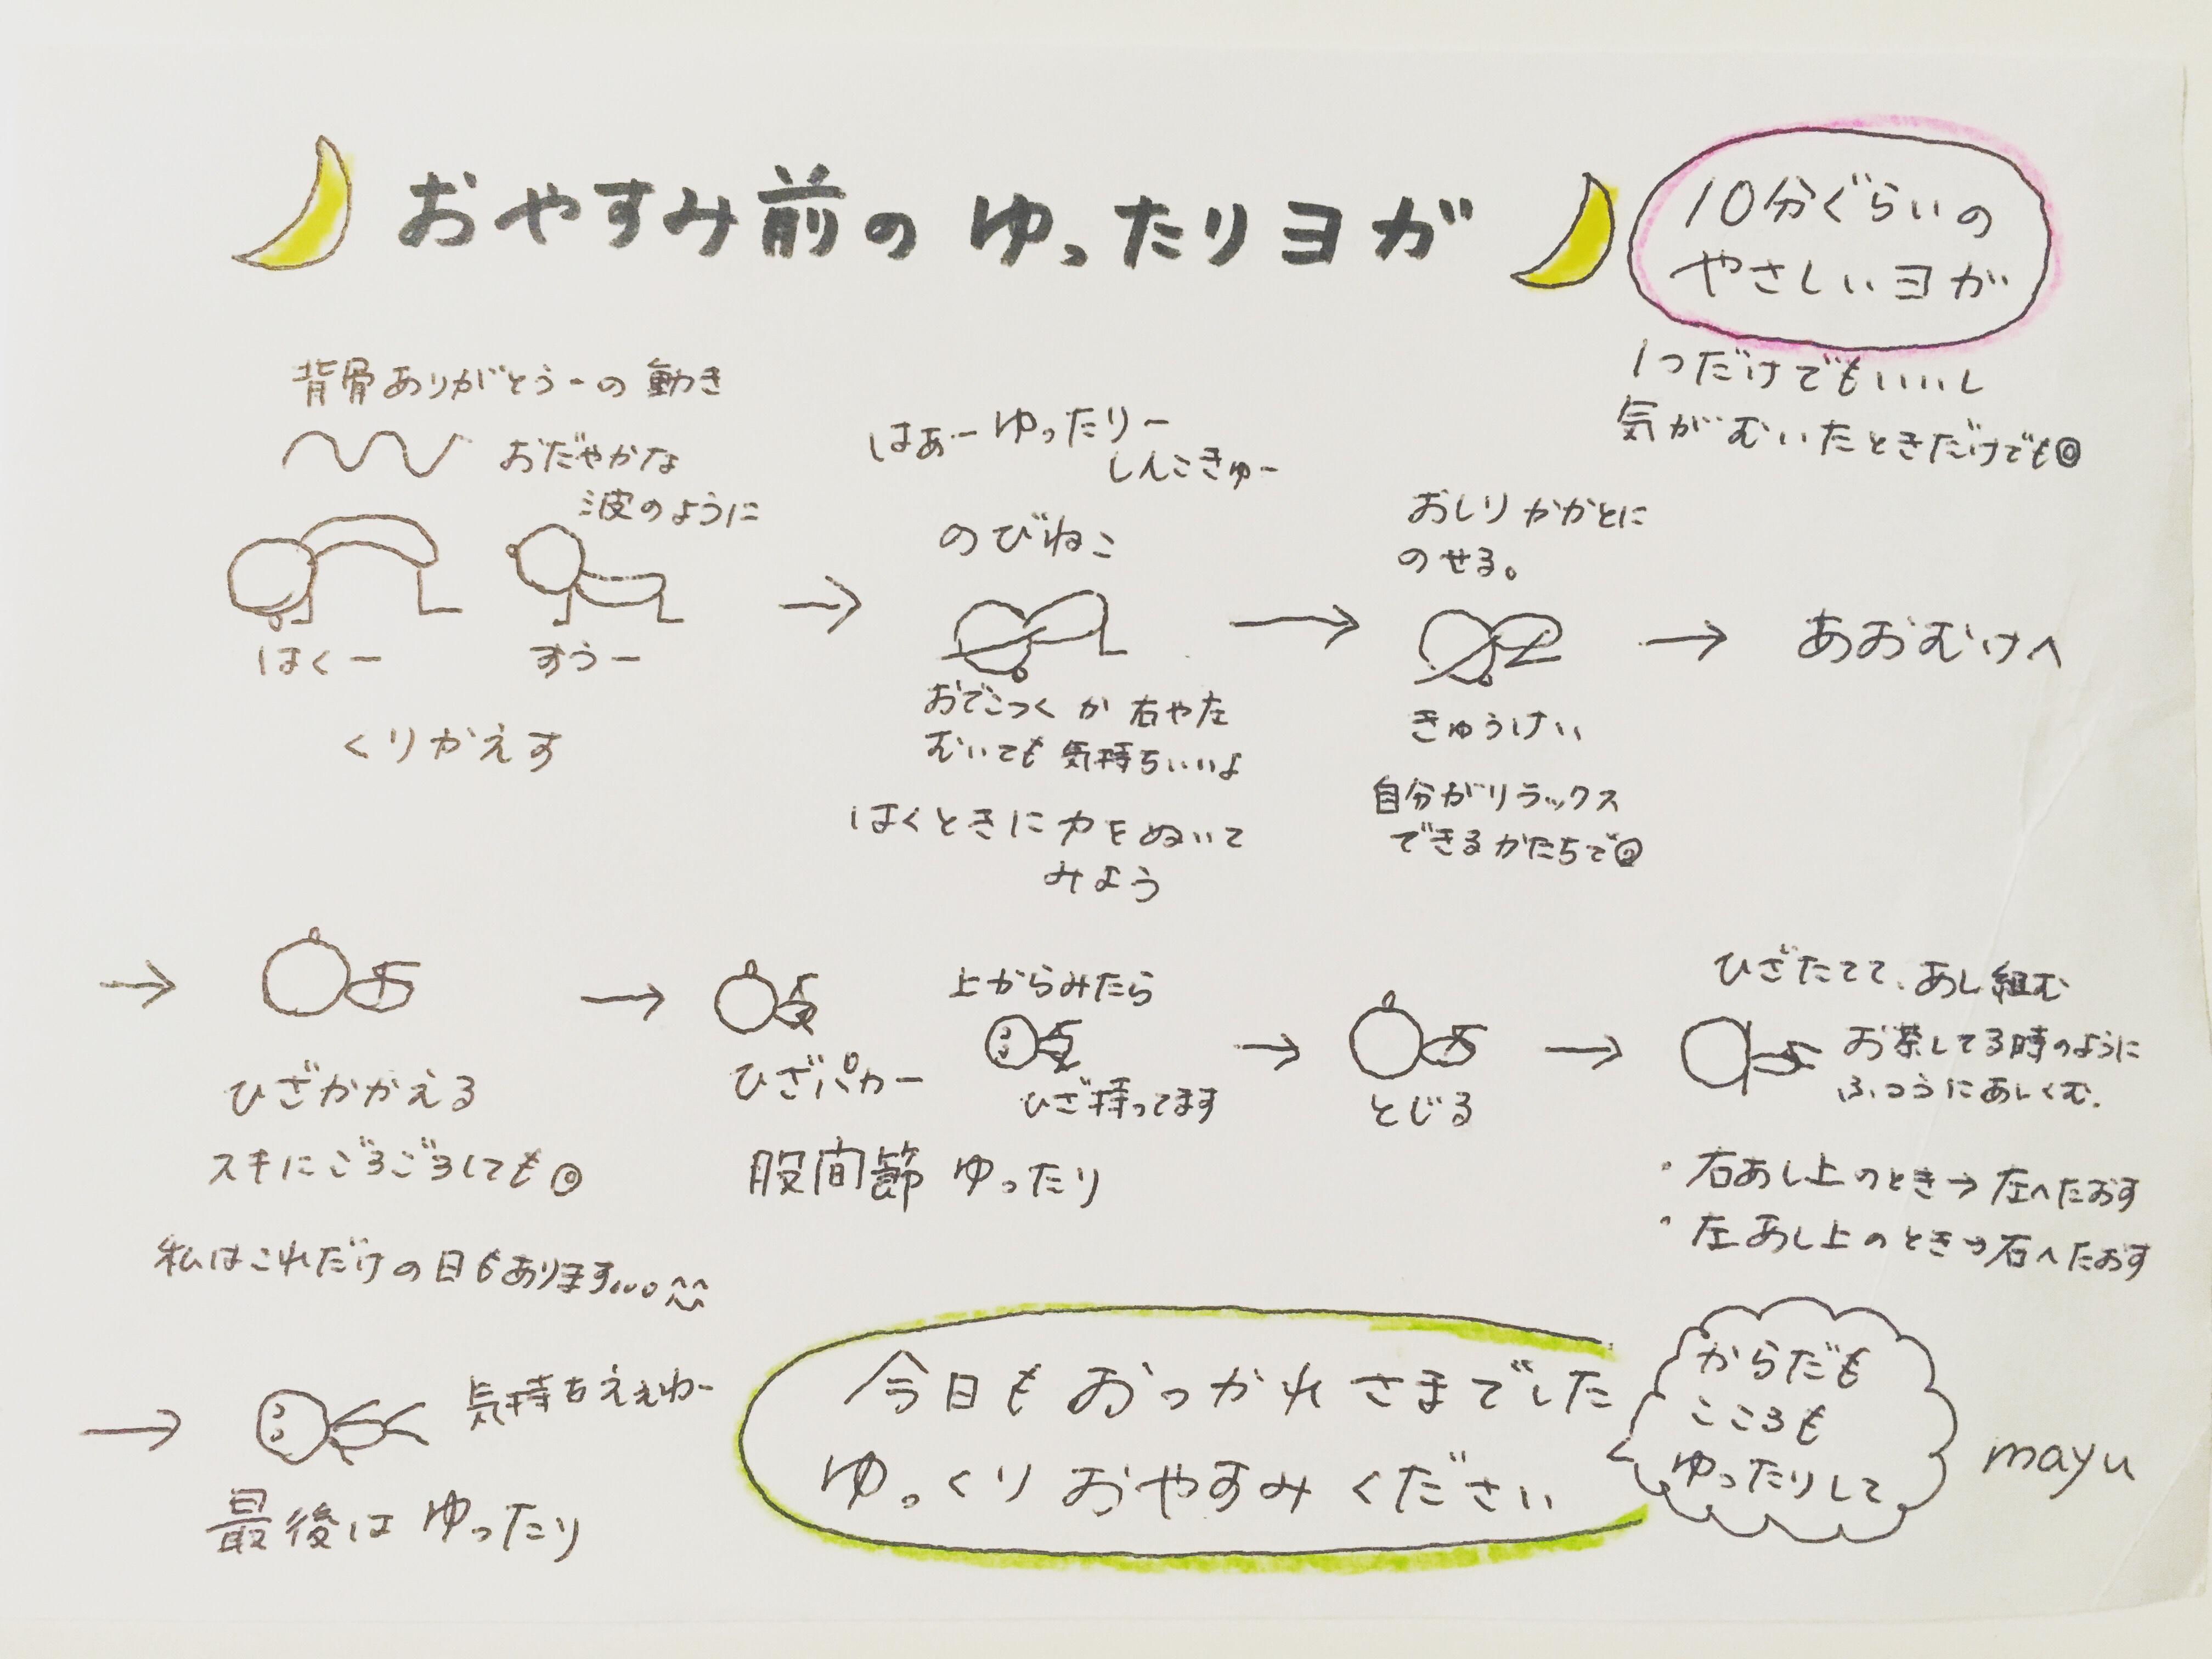 おやすみ前の ゆったりヨガ
10分ぐらいの
やさしいヨガ
1つだけでもいいし
気がむいたときだけでも◎
背骨ありがとうーの動き
おだやかな
波のように
はくー
すうー
くりかえす
→
はぁーゆったりー
しんこきゅー
のびねこ
おでこつくか右や左
むいても気持ちいいよ
はくときに力をぬいて
みよう
→
おしりかかとに
のせる。
きゅうけい
自分がリラックス
できるかたちで◎
→
あおむけへ
→
ひざかかえる
スキにごろごろしても◎
私はこれだけの日もあります...^^
→
ひざパカー
上からみたら
ひざ持ってます
股間節 ゆったり
→
とじる
→
ひざたてて、あし組む
お茶してる時のように
ふつうにあしくむ.
・右あし上のとき→左へたおす
・左あし上のとき→右へたおす
→
気持ちええわー
最後は ゆったり
今日も おつかれさまでした
ゆっくり おやすみください
からだも
こころも
ゆったりして
mayu